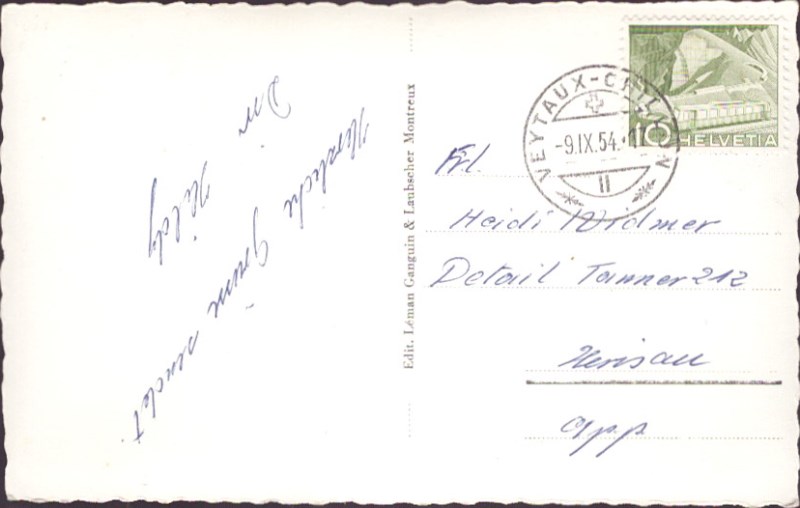 Herzliche Grüsse sendet
Dir Hildy
Edit. Léman Ganguin & Laubscher Montreux
VEYTAUX-CHILLON
-9.IX.54.-17
II
10 HELVETIA
Frl.
Heidi Widmer
Detail Tanner 212
Herisau
App